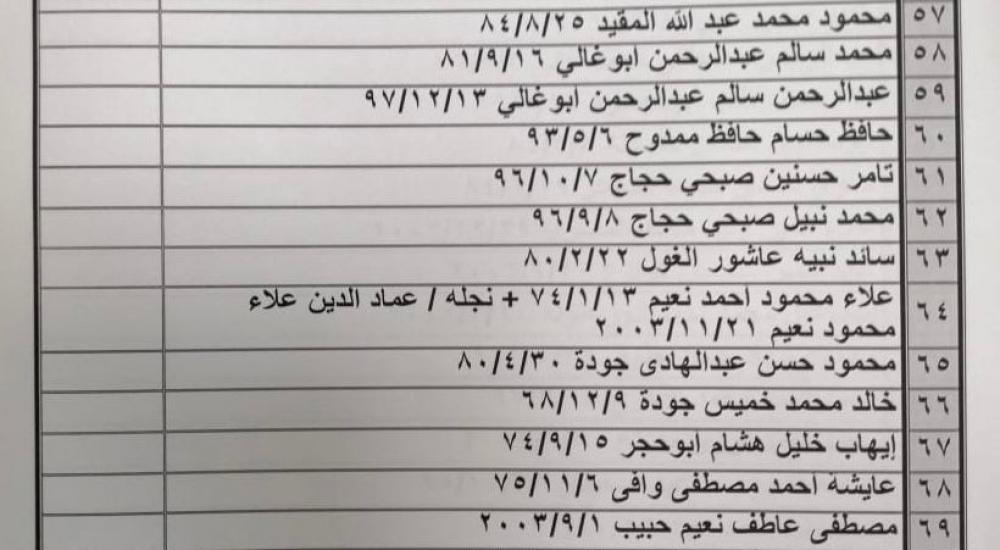 ٥٧ محمود محمد عبد الله المقيد ٨٤/٨/٢٥
٥٨ محمد سالم عبدالرحمن ابوغالي ٨١/٩/١٦
٥٩ عبدالرحمن سالم عبدالرحمن ابوغالي ٩٧/١٢/١٣
٦٠ حافظ حسام حافظ ممدوح ٩٣/٥/٦
٦١ تامر حسنين صبحي حجاج ٩٦/١٠/٧
٦٢ محمد نبيل صبحي حجاج ٩٦/٩/٨
٦٣ سائد نبيه عاشور الغول ٨٠/٢/٢٢
٦٤ علاء محمود احمد نعيم ٧٤/١/١٣ + نجله / عماد الدين علاء
محمود نعيم ٢٠٠٣/١١/٢١
٦٥ محمود حسن عبدالهادى جودة ٨٠/٤/٣٠
٦٦ خالد محمد خميس جودة ٦٨/١٢/٩
٦٧ إيهاب خليل هشام ابوحجر ٧٤/٩/١٥
٦٨ عايشة احمد مصطفى وافى ٧٥/١١/٦
٦٩ مصطفى عاطف نعيم حبيب ٢٠٠٣/٩/١